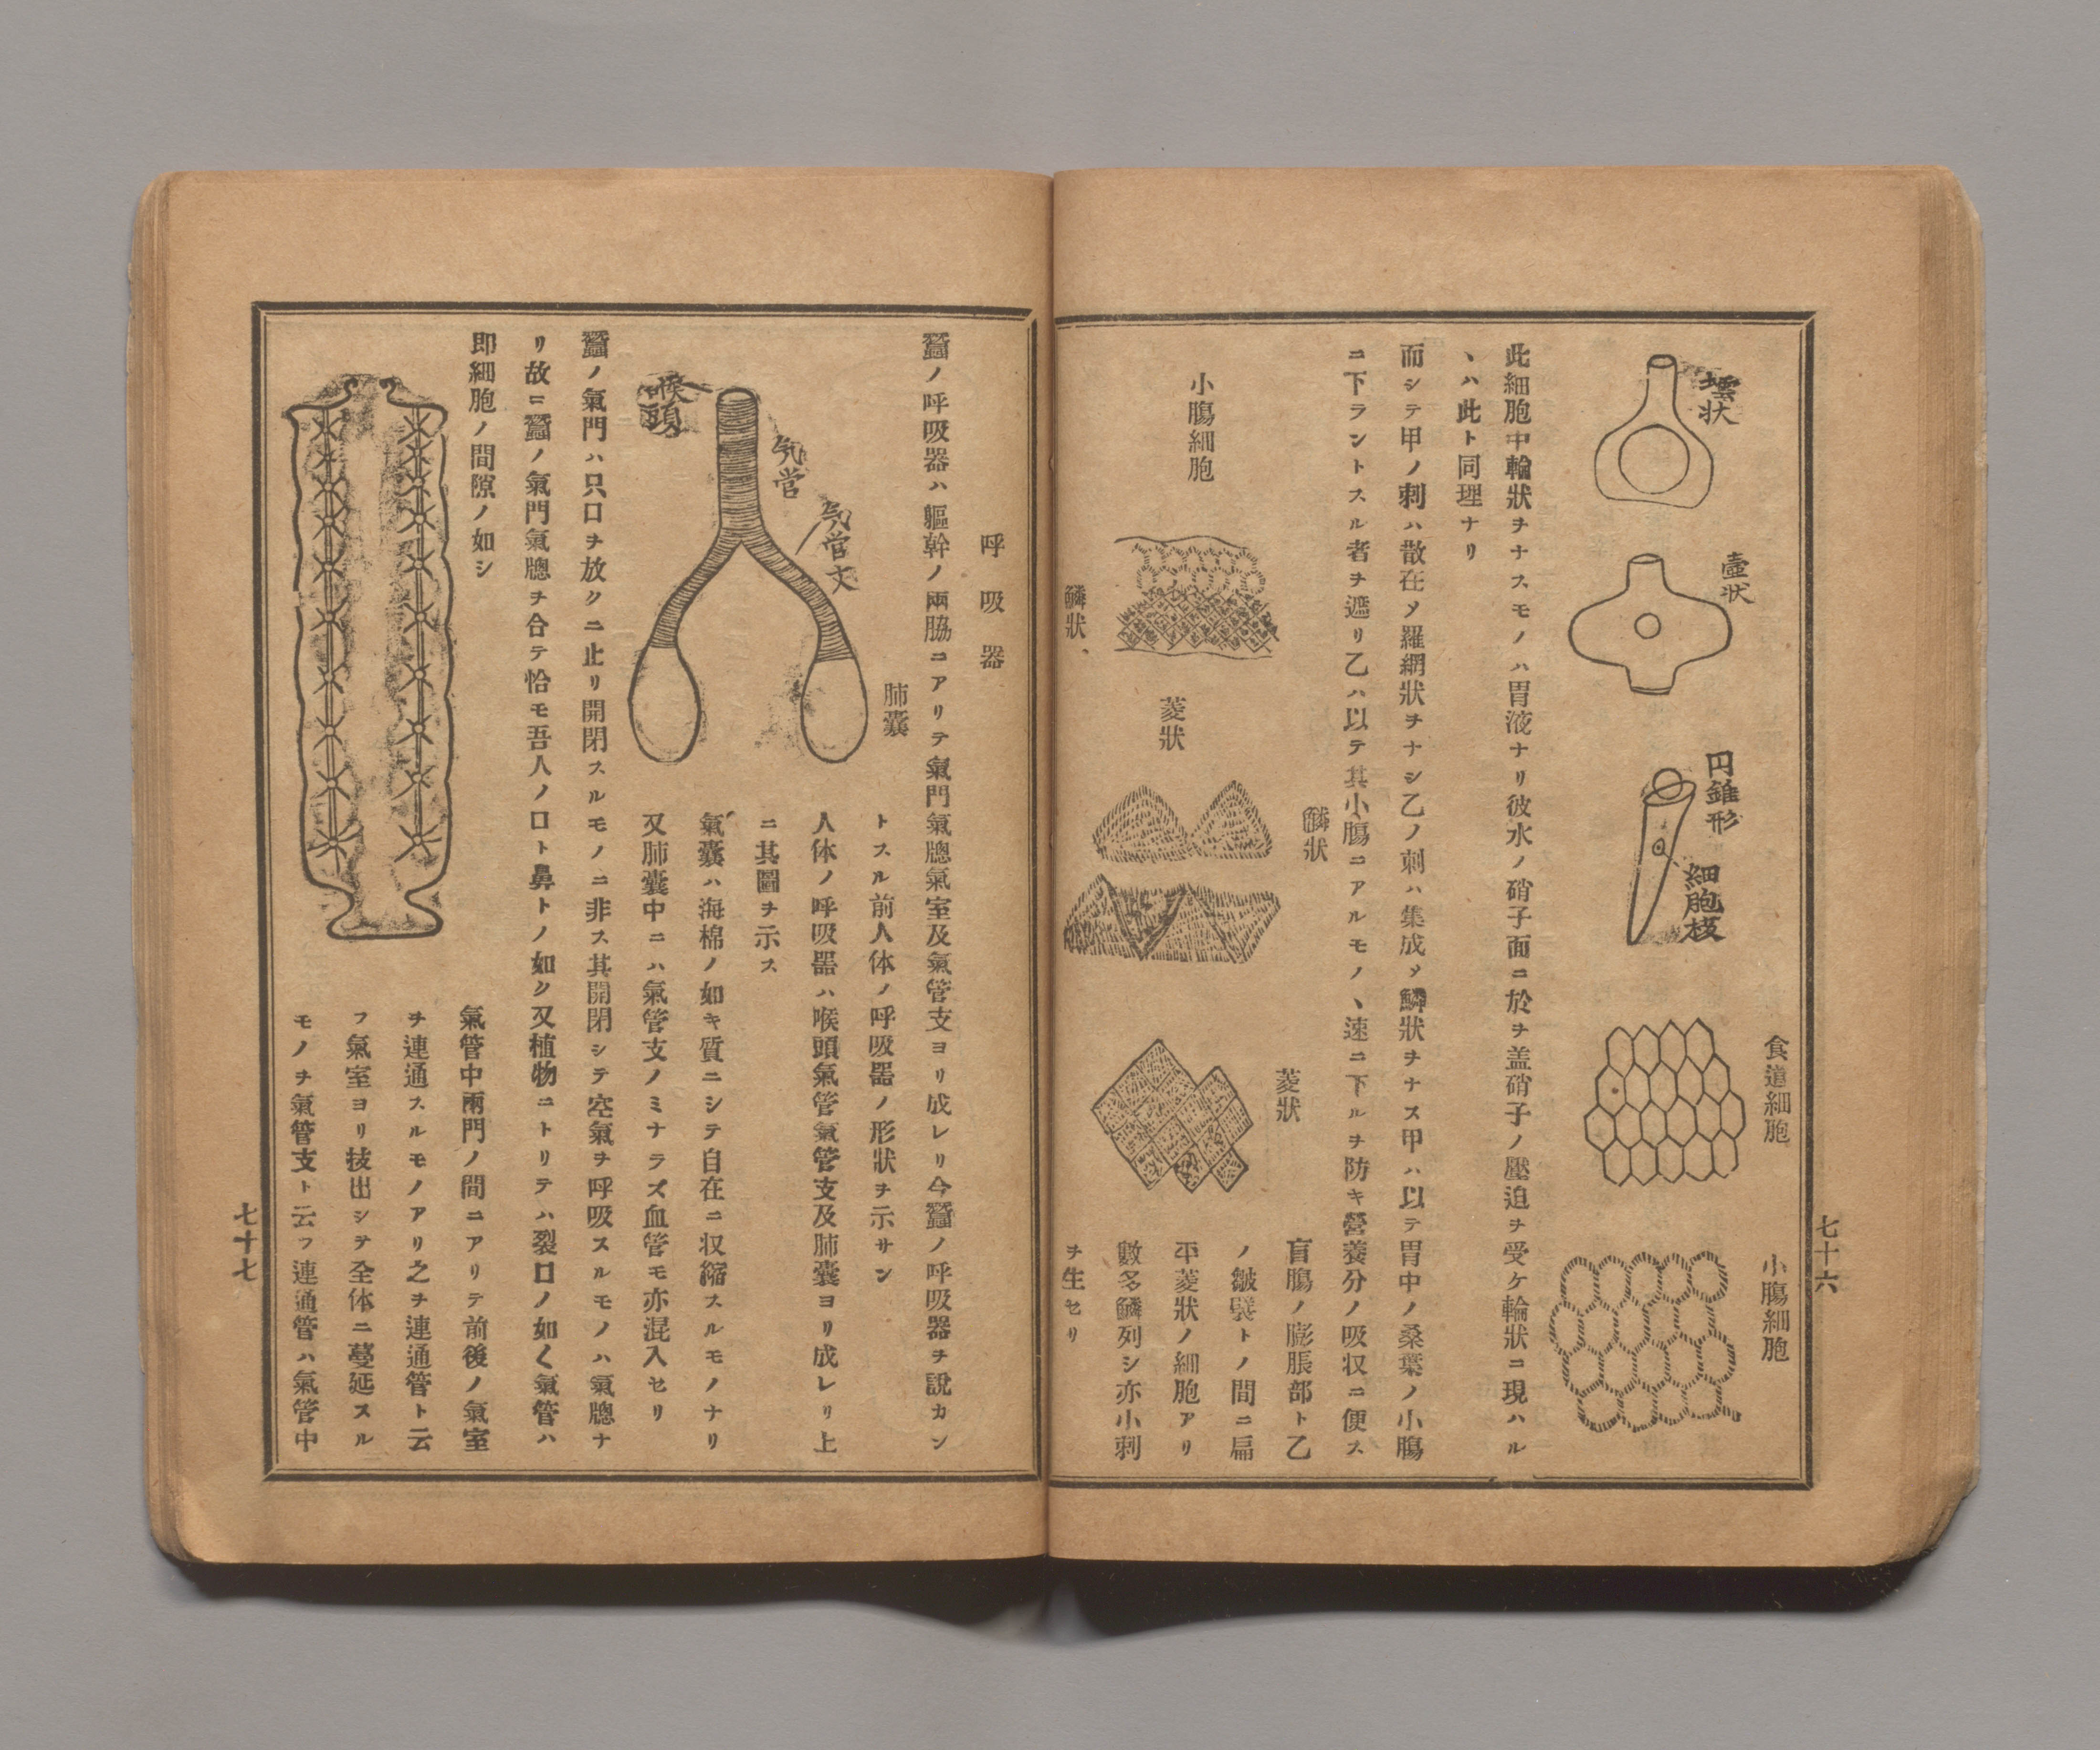 七十六
壜状
壷状
円錐形
細胞核
食道細胞
小膓細胞
此細胞中輪狀ヲナスモノハ胃液ナリ彼水ノ硝子面ニ於ヲ盖硝子ノ壓迫ヲ受ケ輪狀ニ現ハル
ヽハ此ト同理ナリ
而シテ甲ノ刺ハ散在メ羅網狀ヲナシ乙ノ刺ハ集成メ鱗狀ヲナス甲ハ以テ胃中ノ桑葉ノ小膓
ニ下ラントスル者ヲ遮リ乙ハ以テ其小膓ニアルモノヽ速ニ下ルヲ防キ營養分ノ吸収ニ便ス
鱗狀
菱狀
小膓細胞
菱狀
鱗狀
盲膓ノ膨脹部ト乙
ノ皺襞トノ間ニ扁
平菱狀ノ細胞アリ
數多鱗列シ亦小刺
ヲ生セリ
呼吸器
蠶ノ呼吸器ハ軀幹ノ兩脇ニアリテ氣門氣牕氣室及氣管支ヨリ成レリ今蠶ノ呼吸器ヲ說カン
トスル前人体ノ呼吸器ノ形狀ヲ示サン
人体ノ呼吸器ハ喉頭氣管氣管支及肺囊ヨリ成レリ上
ニ其圖ヲ示ス
氣囊ハ海棉ノ如キ質ニシテ自在ニ収縮スルモノナリ
又肺囊中ニハ氣管支ノミナラズ血管モ亦混入セリ
喉頭
気管
気管支
肺囊
蠶ノ氣門ハ只口ヲ放クニ止リ開閉スルモノニ非ス其開閉シテ空氣ヲ呼吸スルモノハ氣牕ナ
リ故ニ蠶ノ氣門氣牕ヲ合テ恰モ吾人ノ口ト鼻トノ如ク又植物ニトリテハ裂口ノ如く氣管ハ
即細胞ノ間隙ノ如シ
氣管中兩門ノ間ニアリテ前後ノ氣室
ヲ連通スルモノアリ之ヲ連通管ト云
フ氣室ヨリ技出シテ全体ニ蔓延スル
モノヲ氣管支ト云フ連通管ハ氣管中
七十七